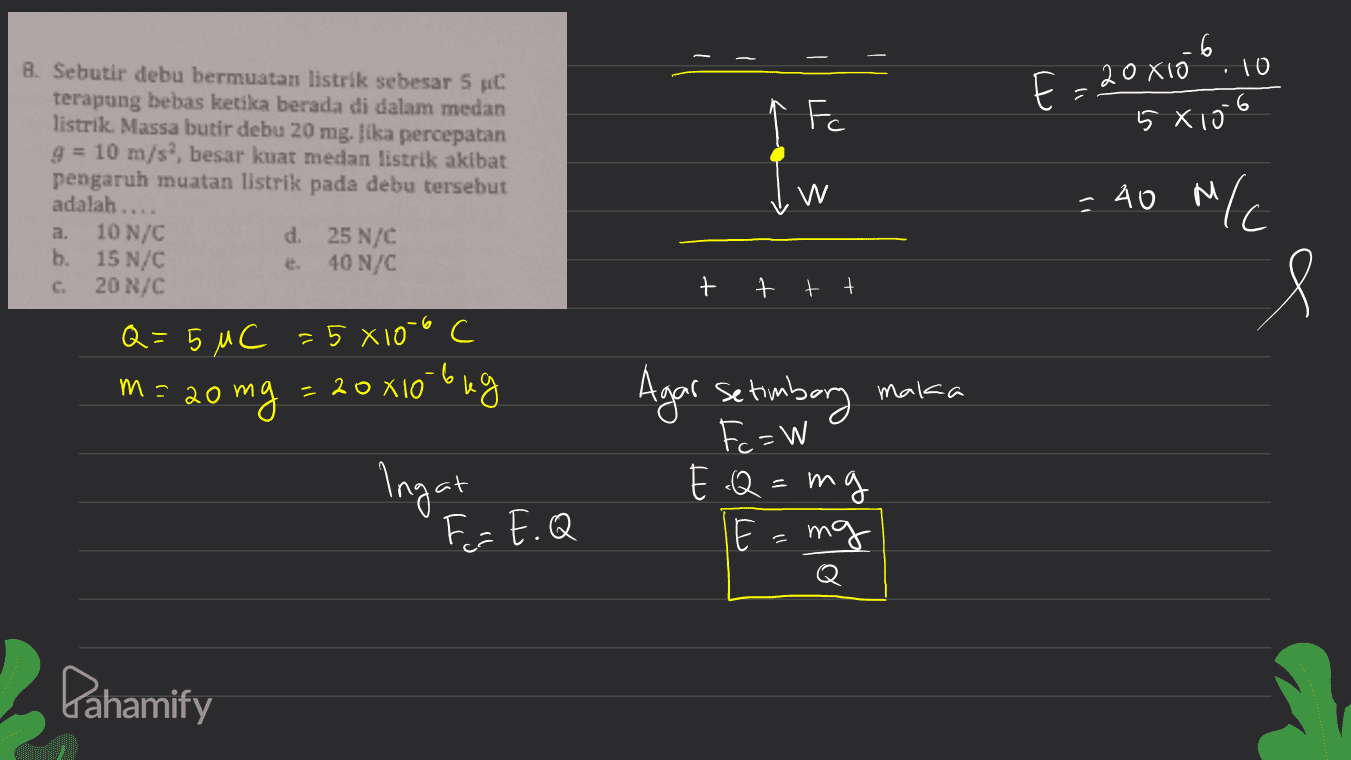 8. Sebutir debu bermuatan listrik sebesar 5 μC
terapung bebas ketika berada di dalam medan
listrik. Massa butir debu 20 mg. Jika percepatan
g = 10 m/s², besar kuat medan listrik akibat
pengaruh muatan listrik pada debu tersebut
adalah ....
a. 10 N/C
b. 15 N/C
c. 20 N/C
d. 25 N/C
e. 40 N/C
Q = 5 μC = 5 x 10⁻⁶ C
m = 20 mg = 20 x 10⁻⁶ kg
Ingat
Fc = E.Q
- - - -
Fc
W
+ + + +
Agar setimbang maka
Fc = W
E.Q = mg
E = mg/Q
E = 20 x 10⁻⁶ . 10 / 5 x 10⁻⁶
= 40 N/C
Pahamify